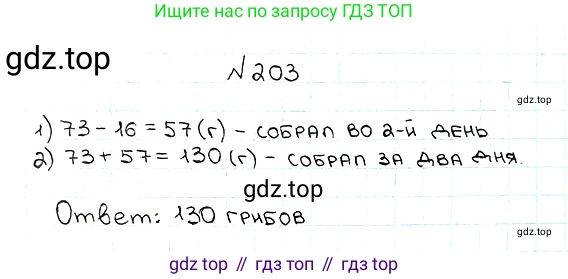 Ищите нас по запросу ГДЗ ТОП
gdz.top
№203
gdz.top
1) 73 - 16 = 57 (г) - СОБРАЛ ВО 2-Й ДЕНЬ
2) 73 + 57 = 130 (г) - СОБРАЛ ЗА ДВА ДНЯ.
gdz.top
Ответ: 130 ГРИБОВ
gdz.top
gdz.top // гдз топ // gdz.top // гдз.топ